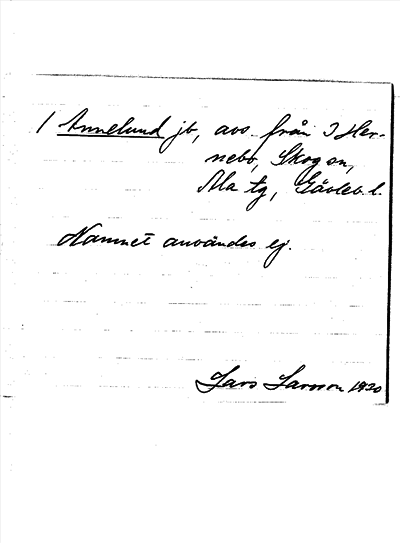 1 Annelund jb, avs. från 3 Her-
nebo, Skog sn,
Ala tg, Gävleb. l.
Namnet användes ej.
Lars Larsson 1930